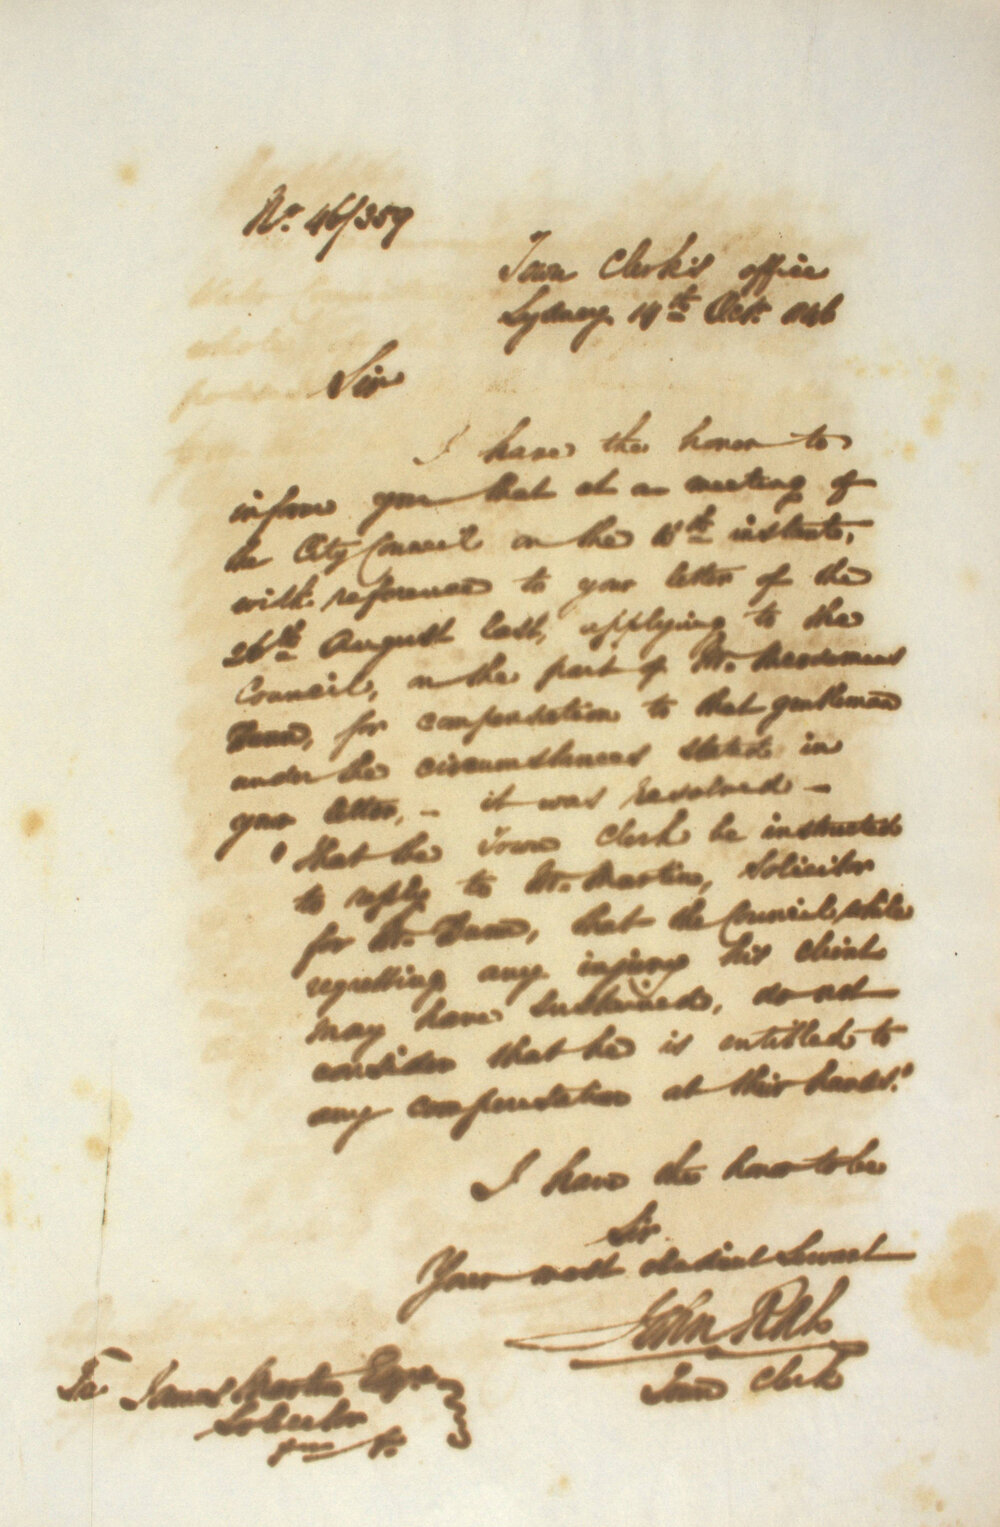 No. 46/359
Town Clerk's office
Sydney 14th Oct. 1846
Sir
I have the honor to
inform you that at a meeting of
the City Council on the 12th instant,
with reference to your letter of the
26th August last, applying to the
Council, on the part of Mr.
Dunn, for compensation to that gentleman
under the circumstances stated in
your letter, - it was resolved -
"That the Town Clerk be instructed
to reply to Mr. Martin, Solicitor
for Mr. Dunn, that the Council while
regretting any injury his client
may have sustained, do not
consider that he is entitled to
any compensation at their hands."
I have the honor to be
Sir
Your most obedient Servant
John Rae
Town Clerk
To James Martin Esqre
Solicitor